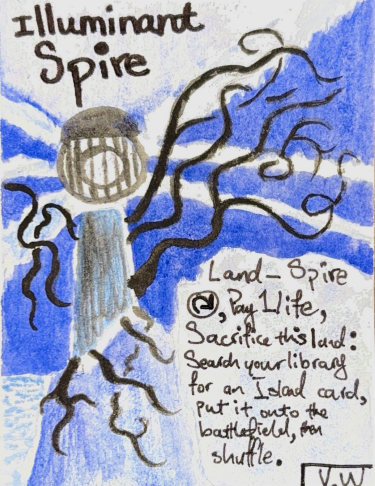 Illuminant
Spire
Land - Spire
, Pay 1 life,
Sacrifice this land:
Search your library
for an Island card,
put it onto the
battlefield, then
shuffle.
V.W